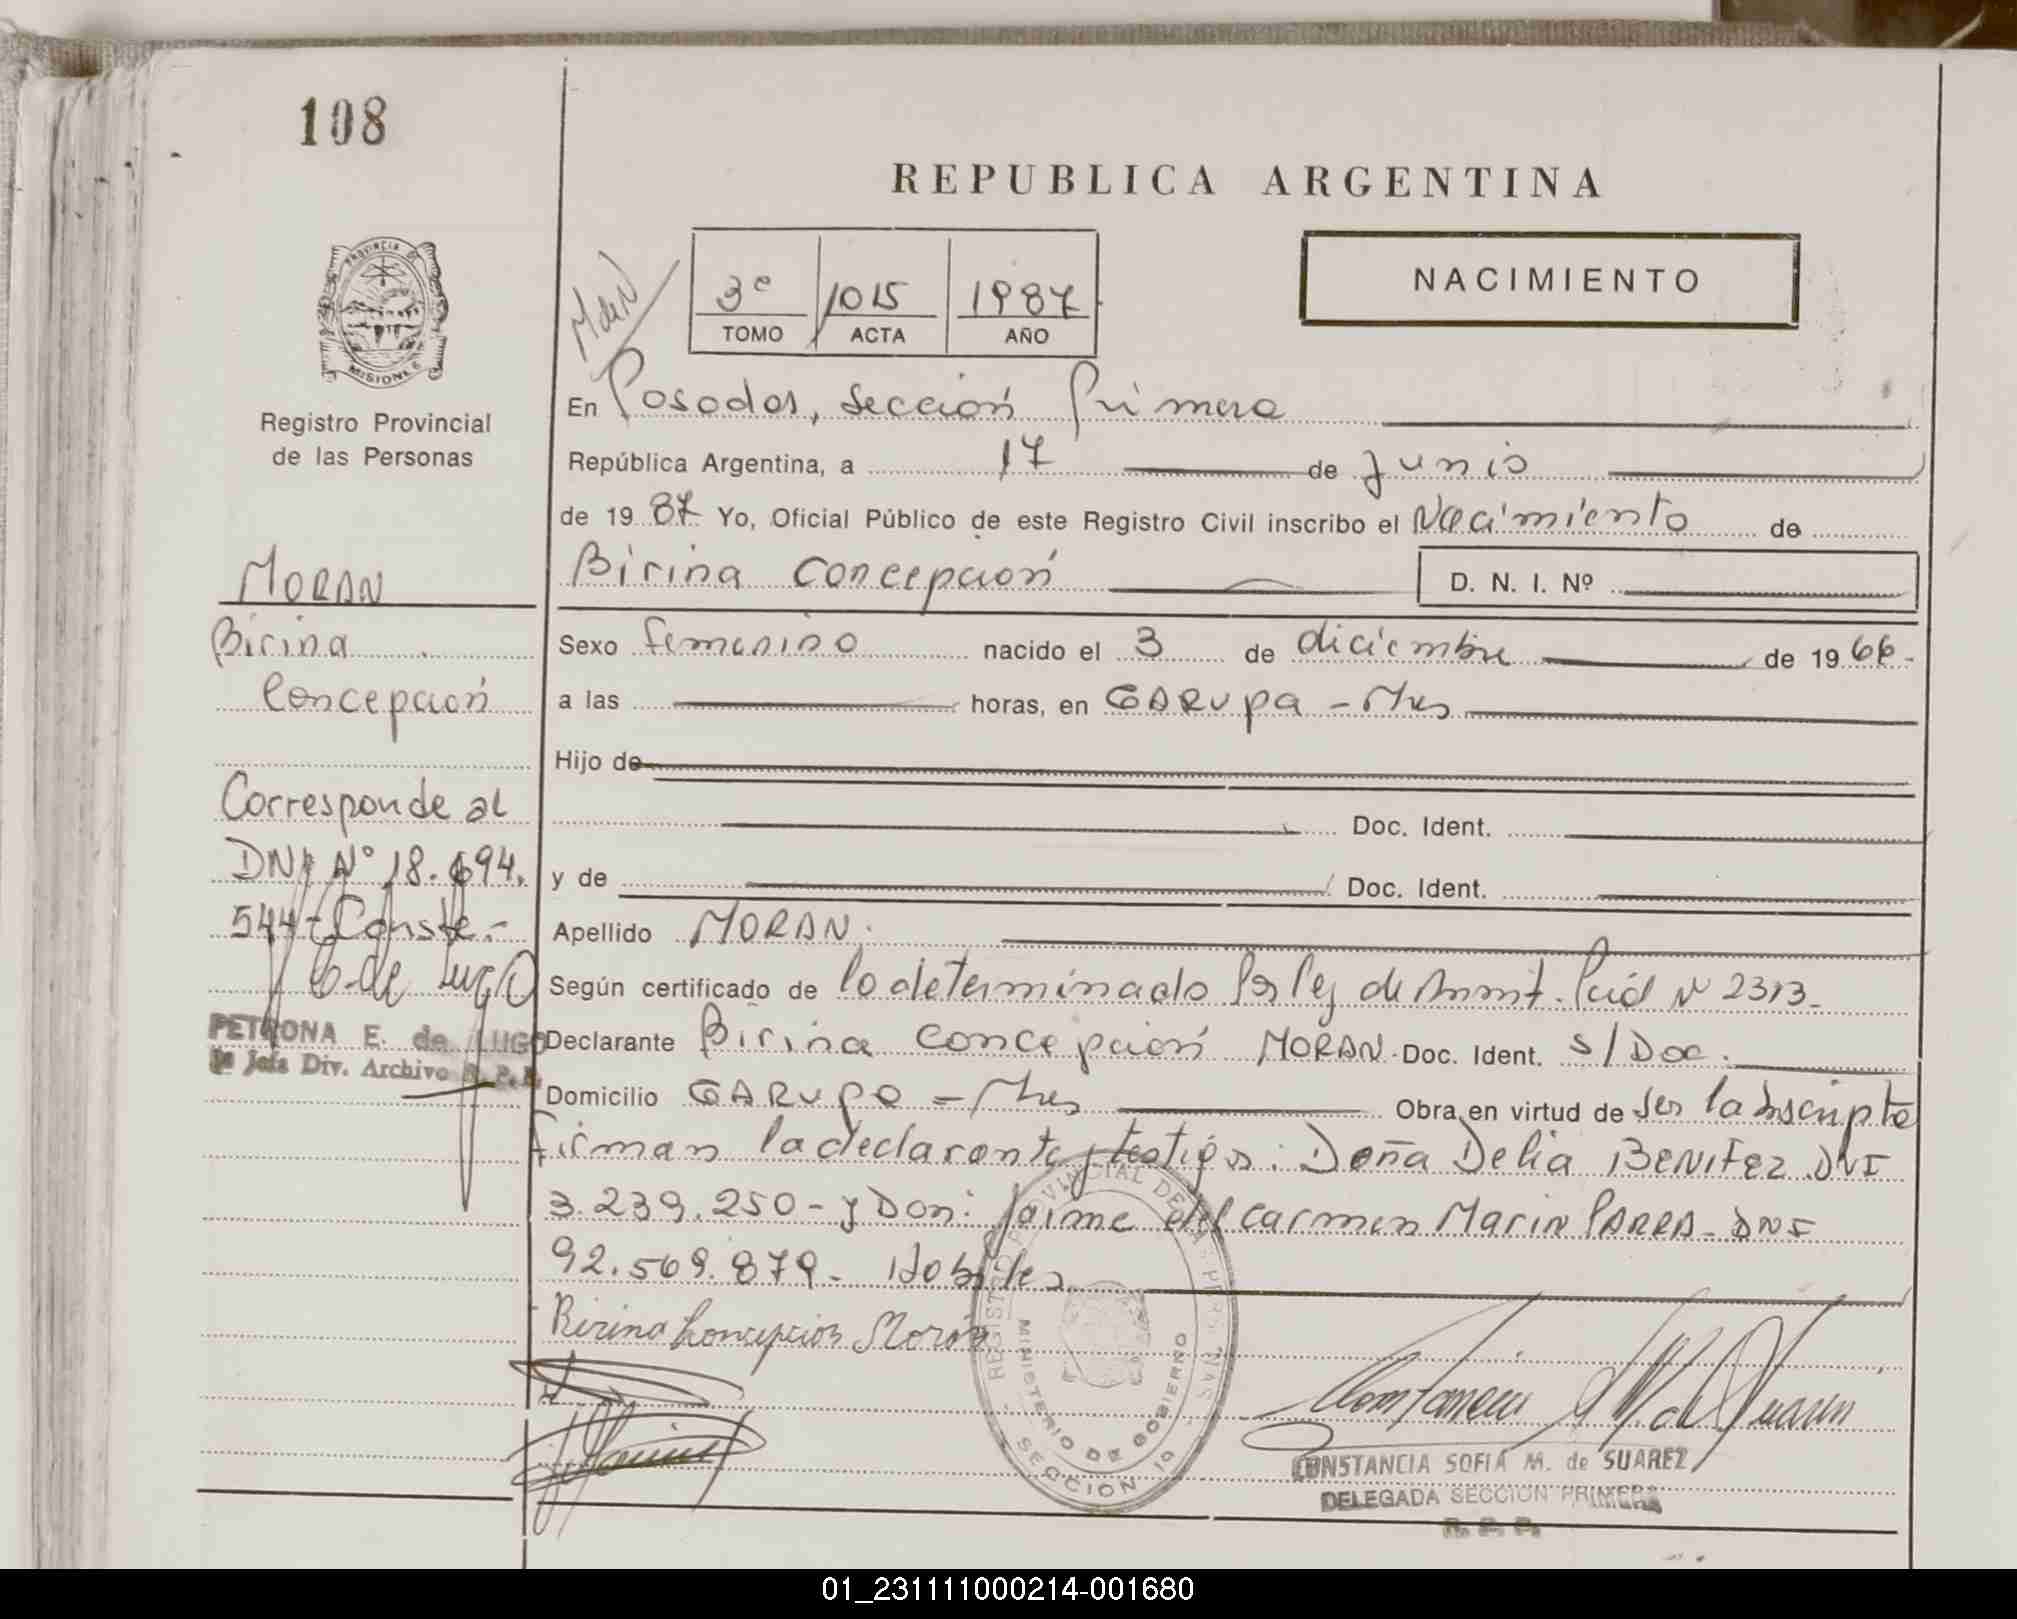 108
REPUBLICA ARGENTINA
3º 1015 1987
TOMO ACTA AÑO
NACIMIENTO
PROVINCIA DE
MISIONES
Registro Provincial
de las Personas
MORAN
Birina
Concepción
Corresponde al
DNI Nº 18.694.
544 - Conste.-
E. de Lugo
PETRONA E. de LUGO
Jefa Div. Archivo R. P. P.
En Posadas, Sección Primera
República Argentina, a 17 de Junio
de 1987 Yo, Oficial Público de este Registro Civil inscribo el Nacimiento de
Birina Concepción D. N. I. Nº
Sexo femenino nacido el 3 de diciembre de 1966-
a las horas, en GARUpa - Mnes
Hijo de
Doc. Ident.
y de Doc. Ident.
Apellido MORAN.
Según certificado de lo determinado Por ley de Amnt. Pcial Nº 2313-
Declarante Birina Concepción MORAN - Doc. Ident. S/Doc.
Domicilio GARUpa - Mnes Obra en virtud de ser la Inscripta
Firman la declarante y testigos: Doña Delia BENITEZ. DNI
3.239.250 - y Don: Jaime del Carmen Marin PARRA - DNI
92.569.879 - Habiles
Birina Concepcion Morán
REGISTRO PROVINCIAL DE LAS PERSONAS
MINISTERIO DE GOBIERNO
SECCION 1a
CONSTANCIA SOFIA M. de SUAREZ
DELEGADA SECCION PRIMERA
R. P. P.
01_231111000214-001680